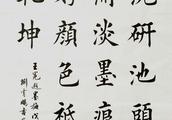 洗研池頭
淡墨痕
好顏色祇
乾坤
王冕題墨梅戊